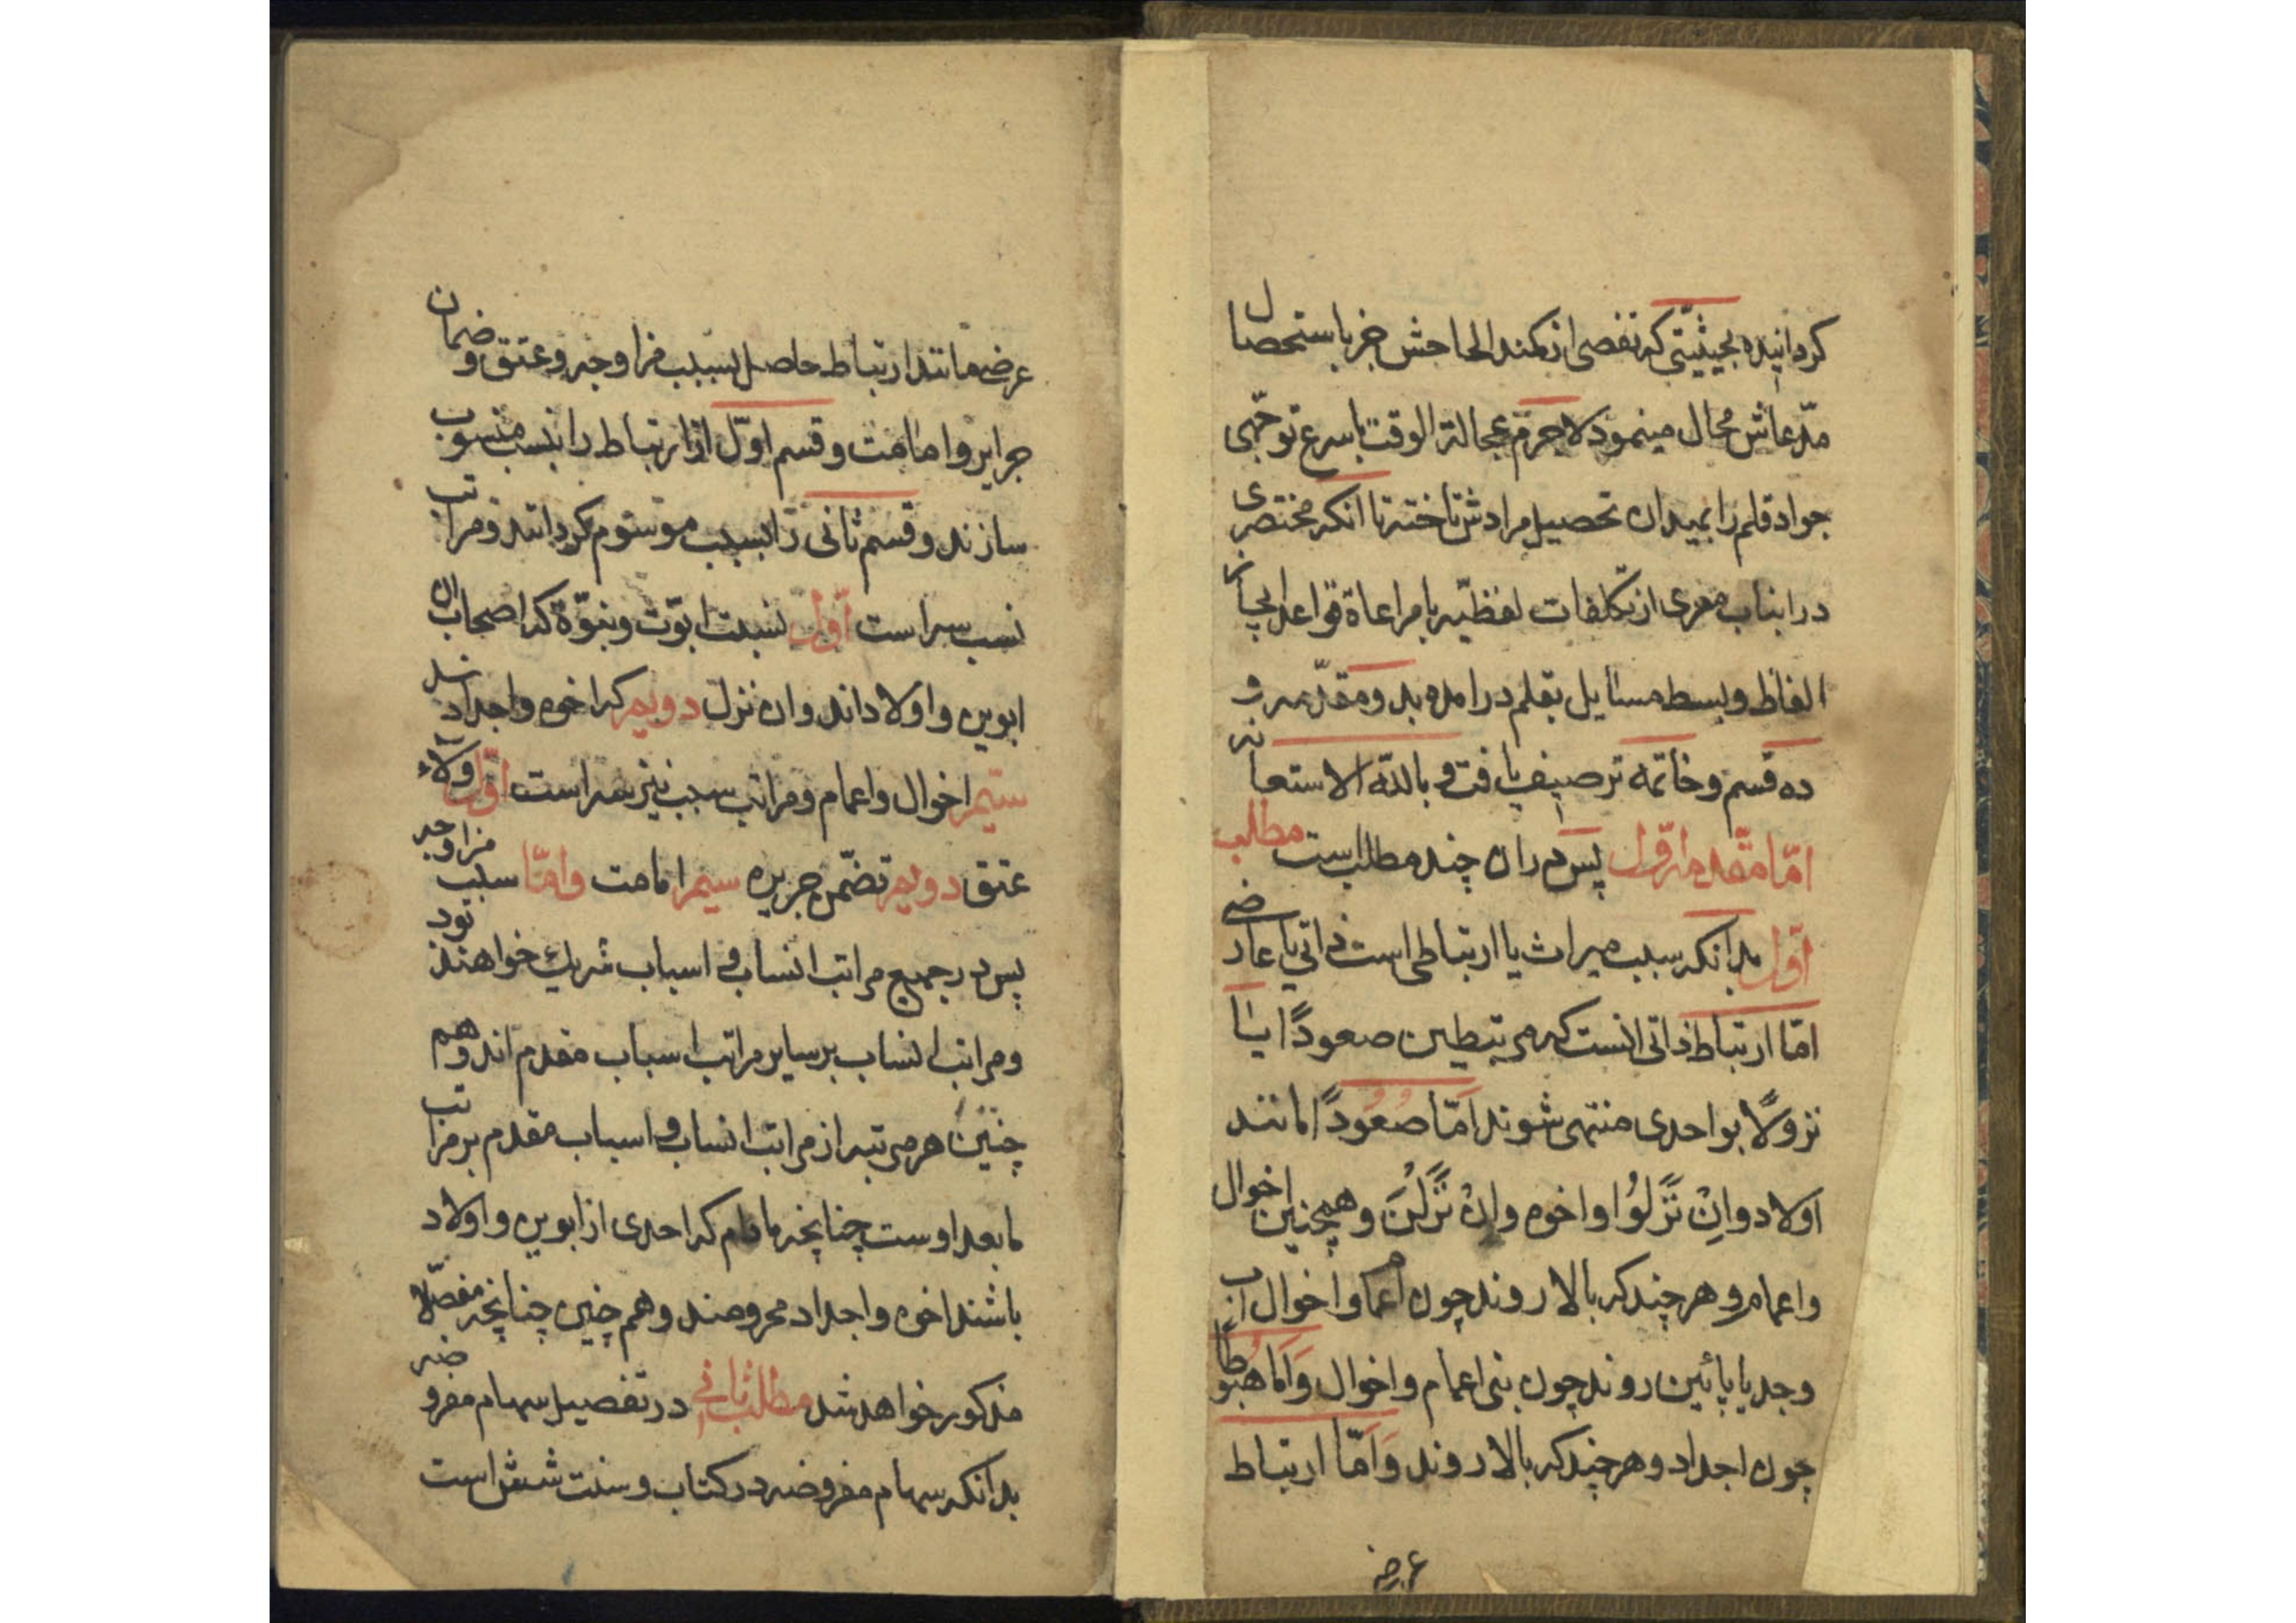 کردانیده بحیثیتی که تفصی از کمند الحاحش جز باستحصال
مدّعاش محال مینمود لاجرم عجالة الوقت باسرع توجّهی
جواد قلم را بمیدان تحصیل مرادش تاخته تا انکه مختصری
دراینباب معری از تکلفات لفظیّه با مراعاة قواعد ایجاز
الفاظ و بسط مسایل بقلم درامده بدو مقدّمه و
ده قسم و خاتمه ترصیف یافت و بالله الاستعانه
امّا مقدمه اوّل پس دران چند مطلب است مطلب
اوّل بدانکه سبب میراث یا ارتباطی است ذاتی یا عارضی
امّا ارتباط ذاتی انست که مرتبطین صعودًا یا
نزولًا بواحدی منتهی شوند امّا صعودًا مانند
اولاد وانِ نَزَلُوا و اخوه وان نَزَلْنَ و همچنین اخوال
و اعمام و هرچند که بالا روند چون اعمام و اخوال اب
وجد یا پائین روند چون بنی اعمام و اخوال وَامّا هبوطًا
چون اجداد و هرچند که بالا روند وَامّا ارتباط
عرضه
عرضی مانند ارتباط حاصل بسبب مزاوجه و عتق و ضمان
جرایر و امامت و قسم اوّل از ارتباط را بنسب منسوب
سازند و قسم ثانی را بسبب موسوم کردانند و مراتب
نسب سه است اوّل نسبت ابوّت و بنوّة که اصحاب ان
ابوین و اولاداند وان نزل دویم که اخوه و اجداد
سیّم اخوال و اعمام و مراتب سبب نیز سه است اوّل ولاء
عتق دویم تضمّن جریره سیم امامت وامّا سبب مزاوجه
پس در جمیع مراتب انساب و اسباب شریک خواهند بود
و مراتب انساب بر سایر مراتب اسباب مقدم اند و هم
چنین هر مرتبه از مراتب انساب و اسباب مقدم بر مراتب
مابعد اوست چنانچه مادام که احدی از ابوین و اولاد
باشند اخوه و اجداد محرومند و هم چنین چنانچه مفصّلا
مذکور خواهد شد مطلب ثانی در تفصیل سهام مفروضه
بدانکه سهام مفروضه در کتاب و سنت شش است